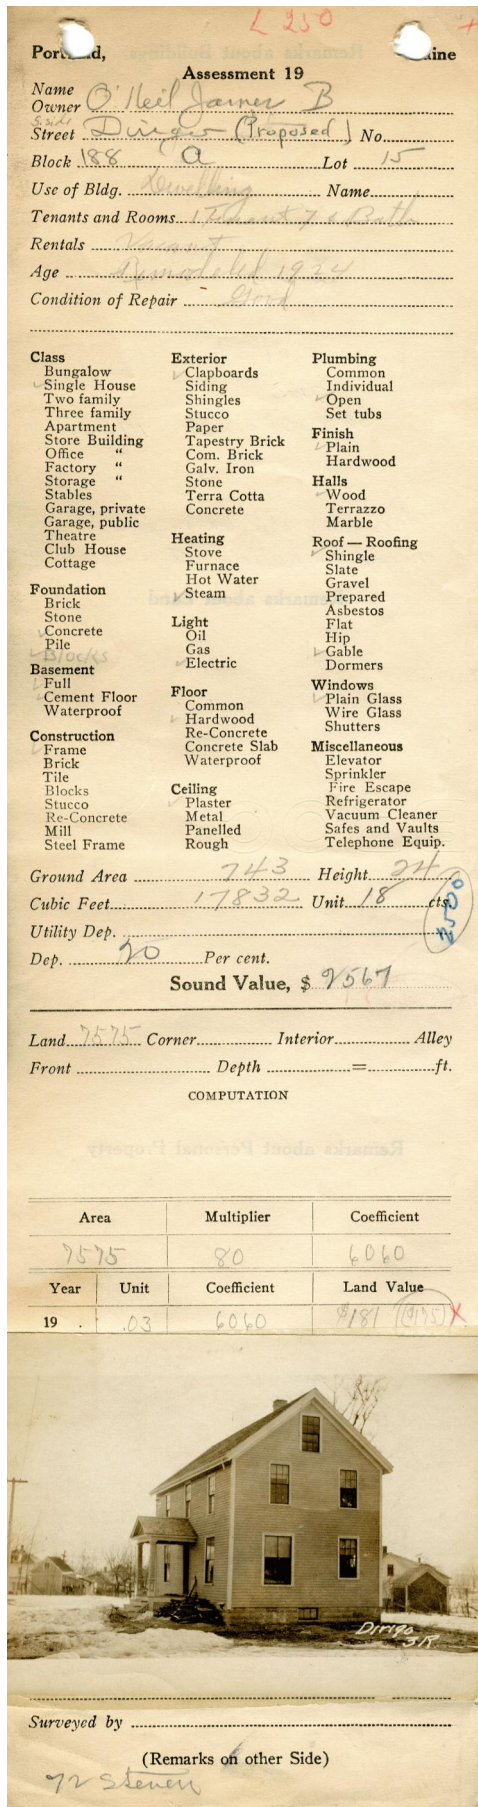 L 250
Portland, Maine
Assessment 19
Name
Owner O'Neil James B
S. Side
Street Dirigo (Proposed) No.
Block 188 A Lot 15
Use of Bldg. Dwelling Name
Tenants and Rooms 1 Tenant 7 & Bath
Rentals Vacant
Age Remodeled 1924
Condition of Repair Good
Class
Bungalow
Single House
Two family
Three family
Apartment
Store Building
Office "
Factory "
Storage "
Stables
Garage, private
Garage, public
Theatre
Club House
Cottage
Foundation
Brick
Stone
Concrete
Pile
Blocks
Basement
Full
Cement Floor
Waterproof
Construction
Frame
Brick
Tile
Blocks
Stucco
Re-Concrete
Mill
Steel Frame
Exterior
Clapboards
Siding
Shingles
Stucco
Paper
Tapestry Brick
Com. Brick
Galv. Iron
Stone
Terra Cotta
Concrete
Heating
Stove
Furnace
Hot Water
Steam
Light
Oil
Gas
Electric
Floor
Common
Hardwood
Re-Concrete
Concrete Slab
Waterproof
Ceiling
Plaster
Metal
Panelled
Rough
Plumbing
Common
Individual
Open
Set tubs
Finish
Plain
Hardwood
Halls
Wood
Terrazzo
Marble
Roof — Roofing
Shingle
Slate
Gravel
Prepared
Asbestos
Flat
Hip
Gable
Dormers
Windows
Plain Glass
Wire Glass
Shutters
Miscellaneous
Elevator
Sprinkler
Fire Escape
Refrigerator
Vacuum Cleaner
Safes and Vaults
Telephone Equip.
Ground Area 743 Height 24
Cubic Feet 17832 Unit 18 cts.
2500
Utility Dep.
Dep. 20 Per cent.
Sound Value, $ 2567
Land 7575 Corner Interior Alley
Front Depth = ft.
COMPUTATION
Area Multiplier Coefficient
7575 80 6060
Year Unit Coefficient Land Value
19 . .03 6060 $181 ($175) X
Dirigo
SR
Surveyed by
(Remarks on other Side)
72 Steven